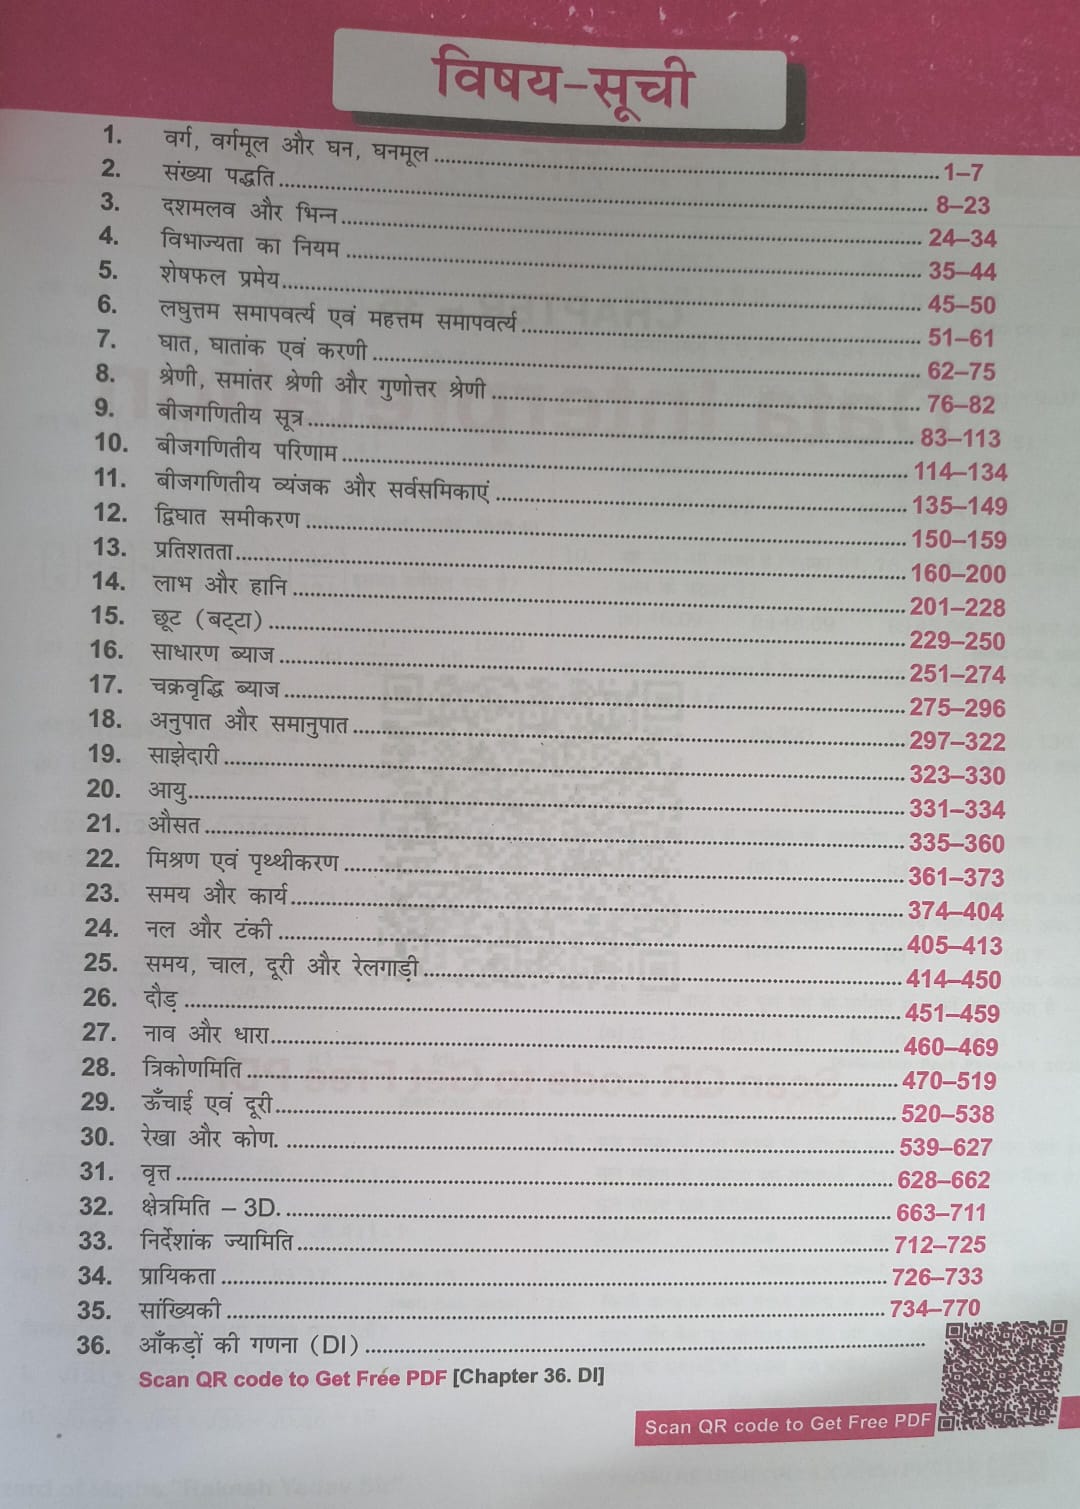 विषय-सूची
1. वर्ग, वर्गमूल और घन, घनमूल 1–7
2. संख्या पद्धति 8–23
3. दशमलव और भिन्न 24–34
4. विभाज्यता का नियम 35–44
5. शेषफल प्रमेय 45–50
6. लघुत्तम समापवर्त्य एवं महत्तम समापवर्त्य 51–61
7. घात, घातांक एवं करणी 62–75
8. श्रेणी, समांतर श्रेणी और गुणोत्तर श्रेणी 76–82
9. बीजगणितीय सूत्र 83–113
10. बीजगणितीय परिणाम 114–134
11. बीजगणितीय व्यंजक और सर्वसमिकाएं 135–149
12. द्विघात समीकरण 150–159
13. प्रतिशतता 160–200
14. लाभ और हानि 201–228
15. छूट (बट्टा) 229–250
16. साधारण ब्याज 251–274
17. चक्रवृद्धि ब्याज 275–296
18. अनुपात और समानुपात 297–322
19. साझेदारी 323–330
20. आयु 331–334
21. औसत 335–360
22. मिश्रण एवं पृथ्थीकरण 361–373
23. समय और कार्य 374–404
24. नल और टंकी 405–413
25. समय, चाल, दूरी और रेलगाड़ी 414–450
26. दौड़ 451–459
27. नाव और धारा 460–469
28. त्रिकोणमिति 470–519
29. ऊँचाई एवं दूरी 520–538
30. रेखा और कोण. 539–627
31. वृत्त 628–662
32. क्षेत्रमिति – 3D. 663–711
33. निर्देशांक ज्यामिति 712–725
34. प्रायिकता 726–733
35. सांख्यिकी 734–770
36. आँकड़ों की गणना (DI)
Scan QR code to Get Free PDF [Chapter 36. DI]
Scan QR code to Get Free PDF